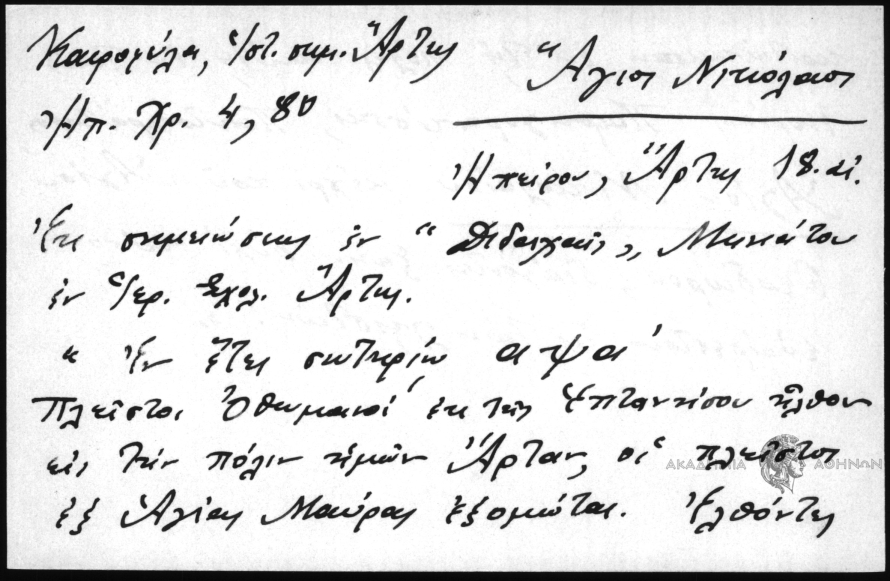 Καιροφύλα, Ἱστ. σημ. Ἄρτης
Ἠπ. Χρ. 4, 80
"Ἅγιος Νικόλαος
Ἠπείρου, Ἄρτης 18. αἰ.
Ἐκ σημειώσεως ἐν "Διδαχαῖς„ Μηνιάτου
ἐν Ἱερ. Σχολ. Ἄρτης.
" Ἐν ἔτει σωτηρίῳ αψαʹ
πλεῖστοι Ὀθωμανοί ἐκ τῆς Ἑπτανήσου ἦλθον
εἰς τὴν πόλιν ἡμῶν Ἄρταν, οἱ πλεῖστοι
ἐξ Ἁγίας Μαύρας ἐξωμόται. Ἐλθόντες
ΑΚΑΔΗΜΙΑ ΑΘΗΝΩΝ